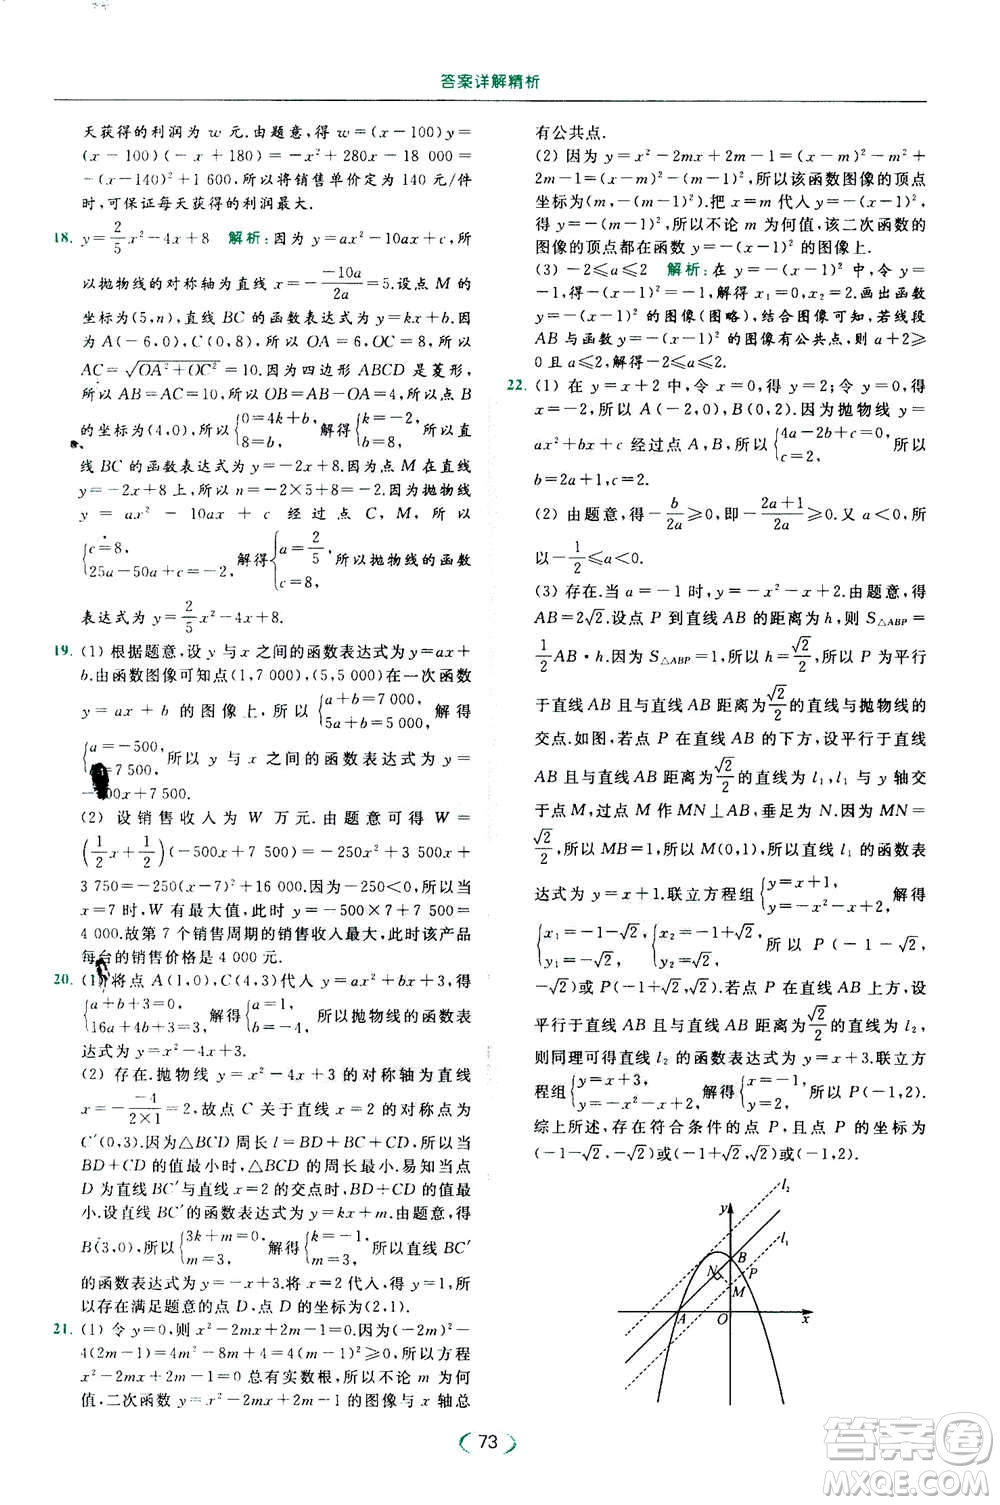 答案详解精析
天获得的利润为 w 元.由题意,得 w=(x-100)y=
(x-100)(-x+180)=-x²+280x-18 000=
-(x-140)²+1 600,所以将销售单价定为 140 元/件
时,可保证每天获得的利润最大.
18. y=2/5x²-4x+8 解析:因为 y=ax²-10ax+c,所
以抛物线的对称轴为直线 x=-(-10a)/(2a)=5.设点 M 的
坐标为(5,n),直线 BC 的函数表达式为 y=kx+b.
因为 A(-6,0),C(0,8),所以 OA=6,OC=8.所以
AC=√(OA²+OC²)=10.因为四边形 ABCD 是菱形,
所以 AB=AC=10,所以 OB=AB-OA=4,所以点 B
的坐标为(4,0),所以{0=4k+b, 8=b, 解得{k=-2, b=8. 所以直
线 BC 的函数表达式为 y=-2x+8.因为点 M 在直线
y=-2x+8 上,所以 n=-2×5+8=-2.因为抛物线
y = ax² - 10ax + c 经过点 C,M,所以
{c=8, 25a-50a+c=-2, 解得{a=2/5, c=8, 所以抛物线的函数
表达式为 y=2/5x²-4x+8.
19. (1) 根据题意,设 y 与 x 之间的函数表达式为 y=ax+
b.由函数图像可知点(1,7 000),(5,5 000)在一次函数
y = ax + b 的图像上,所以{a+b=7 000, 5a+b=5 000, 解得
{a=-500, =7 500, 所以 y 与 x 之间的函数表达式为 y=
-500x+7 500.
(2) 设销售收入为 W 万元.由题意可得 W=
(1/2x+1/2)(-500x+7 500)=-250x²+3 500x+
3 750=-250(x-7)²+16 000.因为-250<0,所以当
x=7 时,W 有最大值,此时 y=-500×7+7 500=
4 000.故第 7 个销售周期的销售收入最大,此时该产品
每台的销售价格是 4 000 元.
20. (1)将点 A(1,0),C(4,3)代入 y=ax²+bx+3,得
{a+b+3=0, 16a+4b+3=3, 解得{a=1, b=-4, 所以抛物线的函数表
达式为 y=x²-4x+3.
(2) 存在.抛物线 y=x²-4x+3 的对称轴为直线
x=-(-4)/(2×1)=2,故点 C 关于直线 x=2 的对称点为
C′(0,3).因为△BCD 周长 l=BD+BC+CD,所以当
BD+CD 的值最小时,△BCD 的周长最小,易知当点
D 为直线 BC′与直线 x=2 的交点时,BD+CD 的值最
小.设直线 BC′的函数表达式为 y=kx+m.因为
B(3,0),所以{3k+m=0, m=3, 解得{k=-1, m=3, 所以直线 BC′
的函数表达式为 y=-x+3.将 x=2 代入,得 y=1.所
以存在满足题意的点 D,点 D 的坐标为(2,1).
21. (1) 令 y=0,则 x²-2mx+2m-1=0.因为(-2m)²-
4(2m-1)=4m²-8m+4=4(m-1)²≥0,所以方程
x²-2mx+2m-1=0 总有实数根,所以不论 m 为何
值,二次函数 y=x²-2mx+2m-1 的图像与 x 轴总
有公共点.
(2) 因为 y=x²-2mx+2m-1=(x-m)²-m²+
2m-1=(x-m)²-(m-1)²,所以该函数图像的顶点
坐标为(m,-(m-1)²).把 x=m 代入 y=-(x-1)²,
得 y=-(m-1)²,所以不论 m 为何值,该二次函数的
图像的顶点都在函数 y=-(x-1)²的图像上.
(3) -2≤a≤2 解析:在 y=-(x-1)²中,令 y=
-1,得-(x-1)²=-1,解得 x₁=0,x₂=2.画出函数
y=-(x-1)²的图像(图略),结合图像可知,若线段
AB 与函数 y=-(x-1)²的图像有公共点,则 a+2≥
0 且 a≤2,解得-2≤a≤2.
22. (1) 在 y=x+2 中,令 x=0,得 y=2;令 y=0,得
x=-2,所以 A(-2,0),B(0,2).因为抛物线 y=
ax²+bx+c 经过点 A,B,所以{4a-2b+c=0, c=2, 所以
b=2a+1,c=2.
(2) 由题意,得-b/2a≥0,即-(2a+1)/2a≥0.又 a<0,所
以-1/2≤a<0.
(3) 存在.当 a=-1 时,y=-x²-x+2.由题意,得
AB=2√2.设点 P 到直线 AB 的距离为 h,则 S△ABP=
1/2AB·h.因为 S△ABP=1,所以 h=√2/2,所以 P 为平行
于直线 AB 且与直线 AB 距离为√2/2的直线与抛物线的
交点.如图,若点 P 在直线 AB 的下方,设平行于直线
AB 且与直线 AB 距离为√2/2的直线为 l₁,l₁ 与 y 轴交
于点 M,过点 M 作 MN⊥AB,垂足为 N.因为 MN=
√2/2,所以 MB=1,所以 M(0,1),所以直线 l₁ 的函数表
达式为 y=x+1.联立方程组{y=x+1, y=-x²-x+2, 解得
{x₁=-1-√2, y₁=-√2, {x₂=-1+√2, y₂=√2. 所以 P(-1-√2,
-√2)或(-1+√2,√2).若点 P 在直线 AB 上方,设
平行于直线 AB 且与直线 AB 距离为√2/2的直线为 l₂,
则同理可得直线 l₂ 的函数表达式为 y=x+3.联立方
程组{y=x+3, y=-x²-x+2, 解得{x=-1, y=2, 所以 P(-1,2).
综上所述,存在符合条件的点 P,点 P 的坐标为
(-1-√2,-√2)或(-1+√2,√2)或(-1,2).
y
l₂
l₁
B
N
P
M
A
O
x
73
答案圈
MXQE.COM